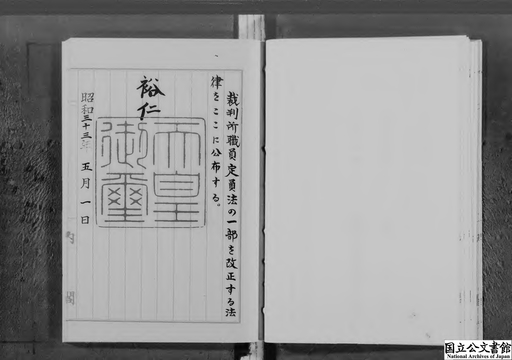 裁判所職員定員法の一部を改正する法
律をここに公布する。
裕仁
天皇
御璽
昭和三十三年 五月 一日
内閣
国立公文書館
National Archives of Japan